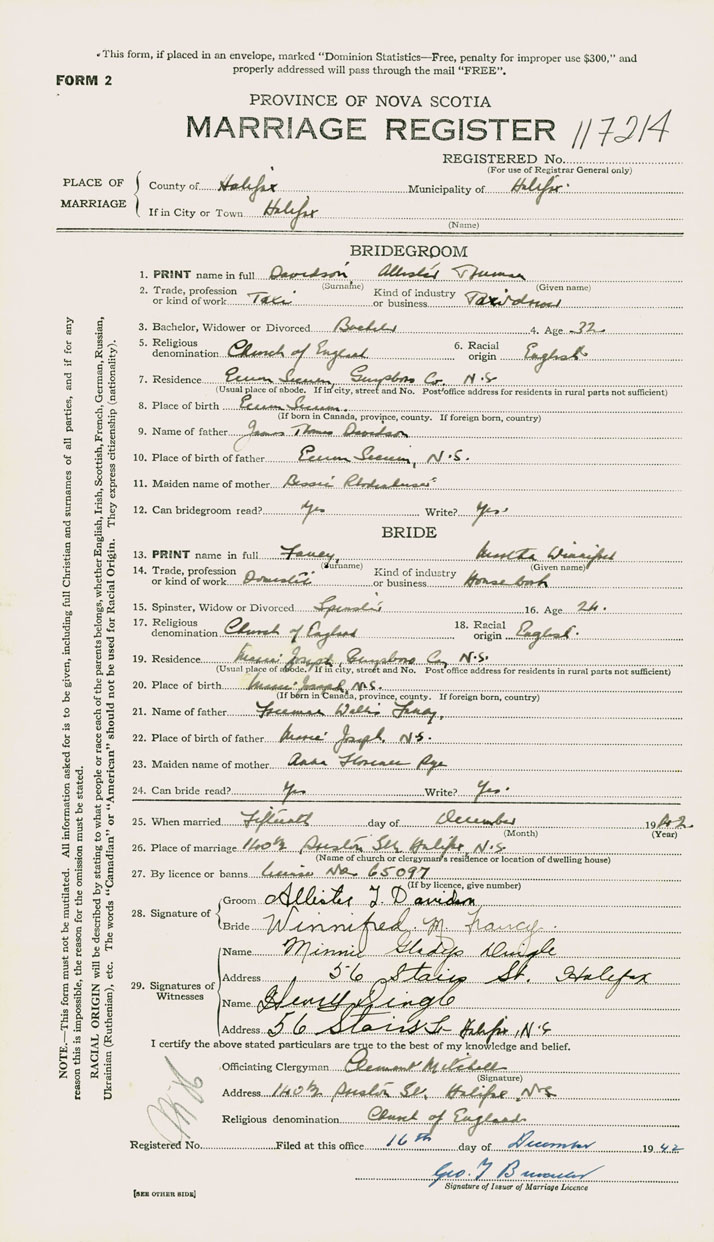 *This form, if placed in an envelope, marked "Dominion Statistics—Free, penalty for improper use $300," and
properly addressed will pass through the mail "FREE".
FORM 2
PROVINCE OF NOVA SCOTIA
MARRIAGE REGISTER 117214
REGISTERED No.
(For use of Registrar General only)
PLACE OF MARRIAGE
County of Halifax Municipality of Halifax.
If in City or Town Halifax
(Name)
BRIDEGROOM
1. PRINT name in full Davidson Allister Truman
(Surname) (Given name)
2. Trade, profession or kind of work Taxi Kind of industry or business
3. Bachelor, Widower or Divorced Bachelor 4. Age 32
5. Religious denomination Church of England 6. Racial origin English
7. Residence Ecum Secum, Guysboro Co. N.S
(Usual place of abode. If in city, street and No. Post office address for residents in rural parts not sufficient)
8. Place of birth Ecum Secum.
(If born in Canada, province, county. If foreign born, country)
9. Name of father James Thomas Davidson
10. Place of birth of father Ecum Secum, N.S.
11. Maiden name of mother Bessie
12. Can bridegroom read? Yes Write? Yes.
BRIDE
13. PRINT name in full Fancy, Martha Winnifred
(Surname) (Given name)
14. Trade, profession or kind of work Domestic Kind of industry or business House work
15. Spinster, Widow or Divorced Spinster 16. Age 24.
17. Religious denomination Church of England 18. Racial origin English.
19. Residence Marie Joseph, Guysboro Co, N.S.
(Usual place of abode. If in city, street and No. Post office address for residents in rural parts not sufficient)
20. Place of birth Marie Joseph, N.S.
(If born in Canada, province, county. If foreign born, country)
21. Name of father Freeman Wallis Fancy,
22. Place of birth of father Marie Joseph, N.S.
23. Maiden name of mother Anna Florence Pye
24. Can bride read? Yes Write? Yes.
25. When married Fifteenth day of December 1942
(Month) (Year)
26. Place of marriage 140½ St., Halifax, N.S
(Name of church or clergyman's residence or location of dwelling house)
27. By licence or banns License No 65097
(If by licence, give number)
28. Signature of
Groom Allister T. Davidson
Bride Winnifred. M. Fancy.
29. Signatures of Witnesses
Name Minnie Gladys Dingle
Address 56 Stairs St. Halifax
Name Dingle
Address 56 Stairs St Halifax, N.S
I certify the above stated particulars are true to the best of my knowledge and belief.
Officiating Clergyman Clement Mitchell
(Signature)
Address 140½ St., Halifax, N.S
Religious denomination Church of England
Registered No. Filed at this office 16th day of December 1942
Geo. T
Signature of Issuer of Marriage Licence
[SEE OTHER SIDE]
NOTE.—This form must not be mutilated. All information asked for is to be given, including full Christian and surnames of all parties, and if for any
reason this is impossible, the reason for the omission must be stated.
RACIAL ORIGIN will be described by stating to what people or race each of the parents belongs, whether English, Irish, Scottish, French, German, Russian,
Ukrainian (Ruthenian), etc. The words "Canadian" or "American" should not be used for Racial Origin. They express citizenship (nationality).